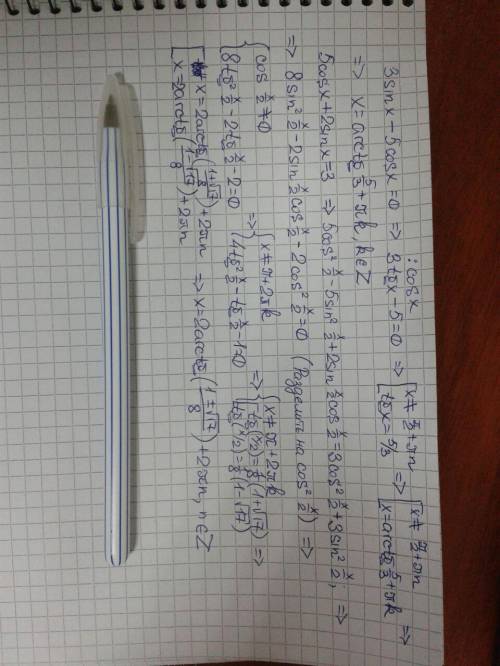 3sinx − 5cosx = 0 ⇒ 3tgx − 5 = 0 ⇒ [x ≠ π/2 + πn [tgx = 5/3 ⇒ [x ≠ π/2 + πn [x = arctg 5/3 + πk ⇒
:cosx
⇒ x = arctg 5/3 + πk, k∈Z
5cosx + 2sinx = 3 ⇒ 5cos² x/2 − 5sin² x/2 + 2sin x/2 cos x/2 = 3cos² x/2 + 3sin² x/2; ⇒
⇒ 8sin² x/2 − 2sin x/2 cos x/2 − 2cos² x/2 = 0 (Разделить на cos² x/2) ⇒
{cos x/2 ≠ 0 ⇒ {x ≠ π + 2πk ⇒ {x ≠ π + 2πk
{8tg² x/2 − 2tg x/2 − 2 = 0 {4tg² x/2 − tg x/2 − 1 = 0 [tg(x/2) = 1/8 (1+√17) ⇒
[tg(x/2) = 1/8 (1−√17)
[x = 2arctg(1+√17/8) + 2πn ⇒ x = 2arctg(1±√17/8) + 2πn, n∈Z
[x = 2arctg(1−√17/8) + 2πn